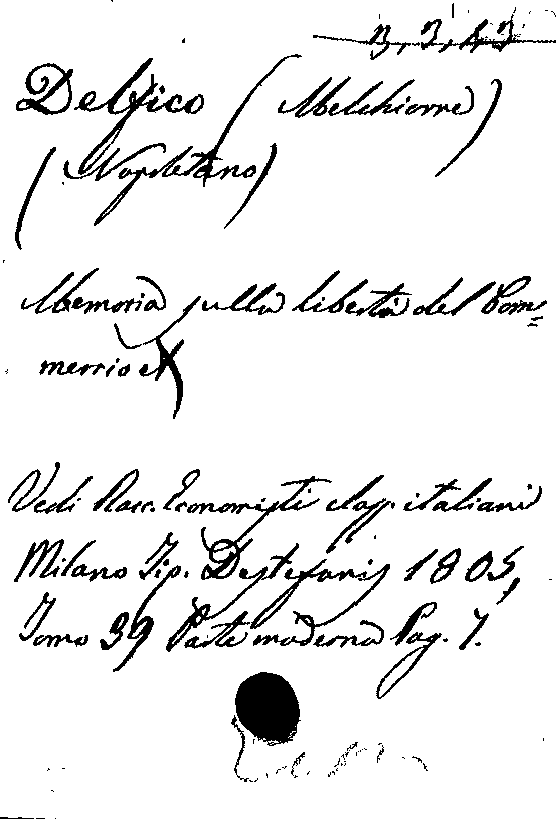 3, 3, 13
Delfico (Melchiorre)
(Napoletano)
Memoria sulla libertà del Com=
mercio
Vedi Racc. Economisti clas. italiani
Milano Tip. Destefanis 1805,
Tomo 39 Parte moderna Pag. 7.